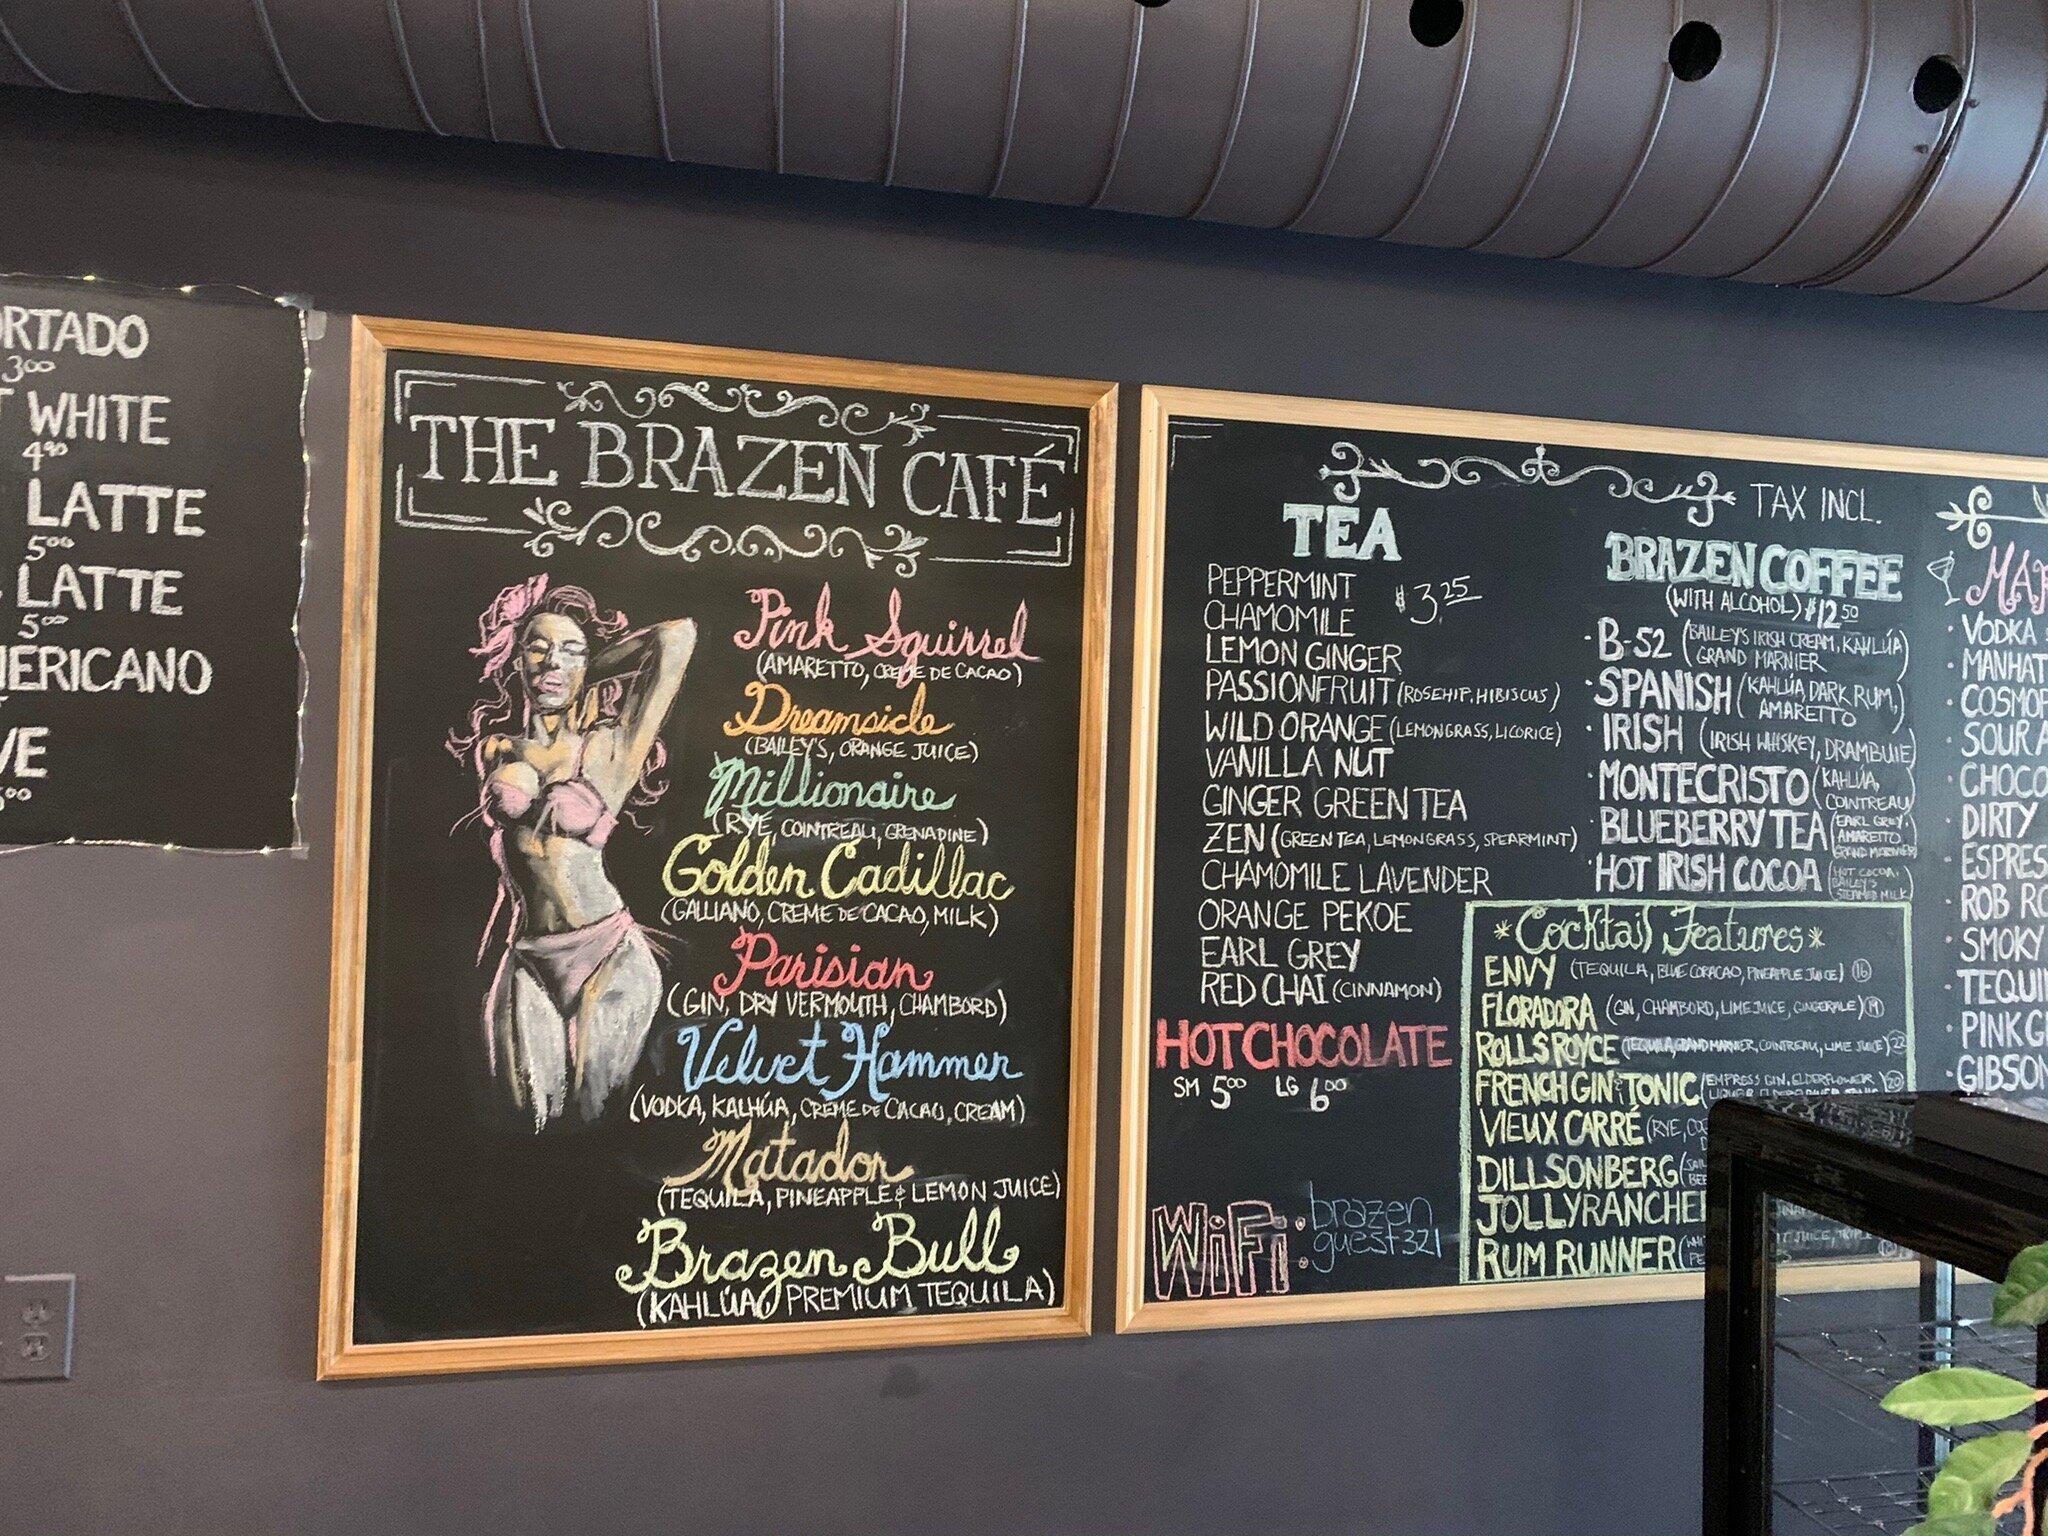 RTADO
3.00
WHITE
4.90
LATTE
5.00
LATTE
5.00
ERICANO
VE
THE BRAZEN CAFÉ
Pink Squirrel
(AMARETTO, CREME DE CACAO)
Dreamsicle
(BAILEY'S, ORANGE JUICE)
Millionaire
(RYE, COINTREAU, GRENADINE)
Golden Cadillac
(GALLIANO, CREME DE CACAO, MILK)
Parisian
(GIN, DRY VERMOUTH, CHAMBORD)
Velvet Hammer
(VODKA, KALHÚA, CREME DE CACAO, CREAM)
Matador
(TEQUILA, PINEAPPLE & LEMON JUICE)
Brazen Bull
(KAHLÚA, PREMIUM TEQUILA)
TAX INCL.
TEA
$3.25
PEPPERMINT
CHAMOMILE
LEMON GINGER
PASSIONFRUIT (ROSEHIP, HIBISCUS)
WILD ORANGE (LEMONGRASS, LICORICE)
VANILLA NUT
GINGER GREEN TEA
ZEN (GREEN TEA, LEMONGRASS, SPEARMINT)
CHAMOMILE LAVENDER
ORANGE PEKOE
EARL GREY
RED CHAI (CINNAMON)
HOT CHOCOLATE
SM 5.00 LG 6.00
WiFi: brazen
guest321
BRAZEN COFFEE
(WITH ALCOHOL) $12.50
· B-52 (BAILEY'S IRISH CREAM, KAHLÚA)
GRAND MARNIER
· SPANISH (KAHLÚA, DARK RUM,)
AMARETTO
· IRISH (IRISH WHISKEY, DRAMBUIE)
· MONTECRISTO (KAHLÚA,
COINTREAU)
· BLUEBERRY TEA (EARL GREY,
AMARETTO
GRAND MARNIER)
· HOT IRISH COCOA (HOT COCOA,
BAILEY'S
STEAMED MILK)
*Cocktail Features*
ENVY (TEQUILA, BLUE CORACAO, PINEAPPLE JUICE) 16
FLORADORA (GIN, CHAMBORD, LIME JUICE, GINGERALE) 19
ROLLS ROYCE (TEQUILA, GRAND MARNIER, COINTREAU, LIME JUICE) 22
FRENCH GIN & TONIC (EMPRESS GIN, ELDERFLOWER 20
VIEUX CARRÉ (RYE,
DILLSONBERG
JOLLYRANCHER
RUM RUNNER
MAR
VODKA
· MANHAT
· COSMOP
· SOUR A
· CHOCO
· DIRTY
· ESPRES
· ROB RO
· SMOKY
· TEQUI
· PINK G
· GIBSON